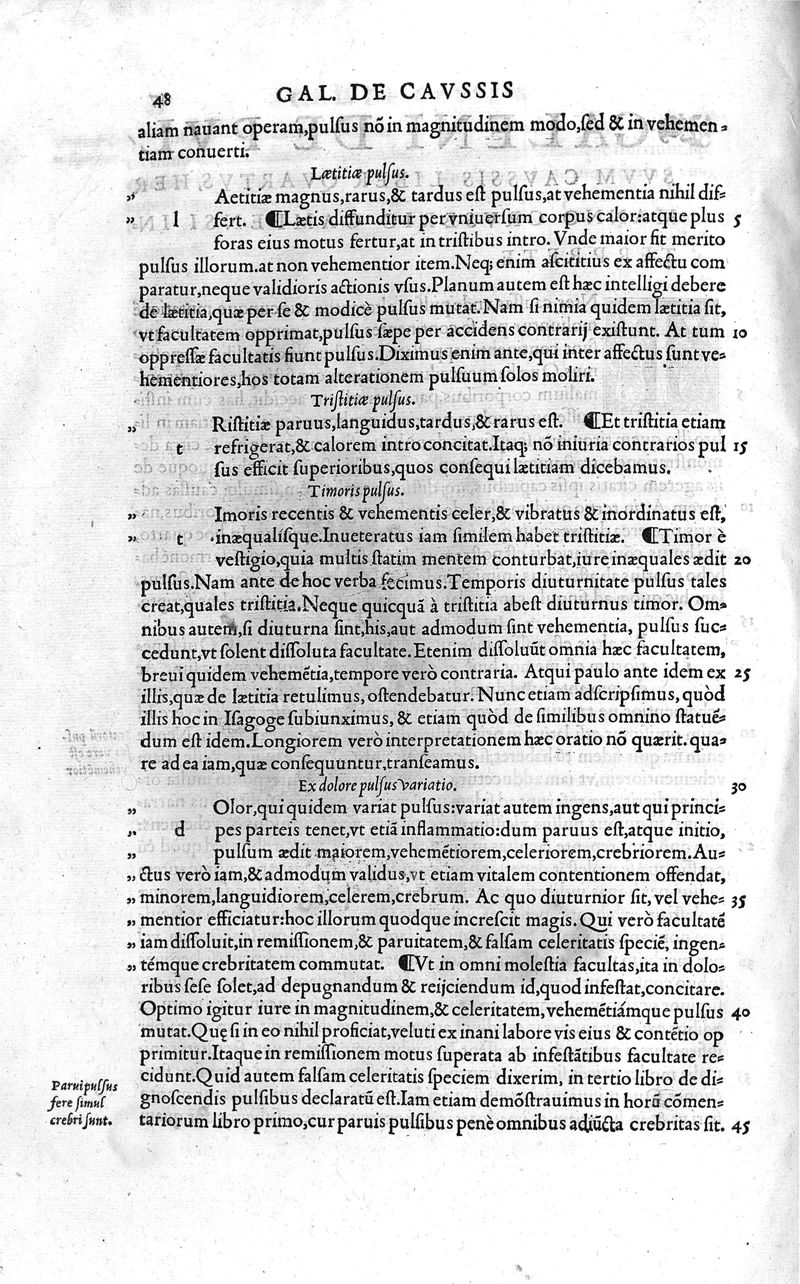 48 GAL. DE CAVSSIS
aliam nauant operam,pulſus nõ in magnitudinem modo,ſed & in vehemen⸗
tiam conuerti.
Lætitiæ pulſus.
„ Aetitiæ magnus,rarus,& tardus eſt pulſus,at vehementia nihil dif⸗
„ l fert. ¶Lætis diffunditur per vniuerſum corpus calor:atque plus 5
foras eius motus fertur,at in triſtibus intro. Vnde maior fit merito
pulſus illorum.at non vehementior item.Neq; enim aſcititius ex affectu com
paratur,neque validioris actionis vſus.Planum autem eſt hæc intelligi debere
de lætitia,quæ per ſe & modicè pulſus mutat. Nam ſi nimia quidem lætitia ſit,
vt facultatem opprimat,pulſus ſæpe per accidens contrarij exiſtunt. At tum 10
oppreſſæ facultatis fiunt pulſus.Diximus enim ante,qui inter affectus ſunt ve⸗
hementiores,hos totam alterationem pulſuum ſolos moliri.
Triſtitiæ pulſus.
„ Riſtitiæ paruus,languidus,tardus,& rarus eſt. ¶Et triſtitia etiam
t refrigerat,& calorem intro concitat.Itaq; nõ iniuria contrarios pul 15
ſus efficit ſuperioribus,quos conſequi lætitiam dicebamus.
Timoris pulſus.
„ Imoris recentis & vehementis celer,& vibratus & inordinatus eſt,
„ t inæqualiſque.Inueteratus iam ſimilem habet triſtitiæ. ¶Timor è
veſtigio,quia multis ſtatim mentem conturbat,iure inæquales ædit 20
pulſus.Nam ante de hoc verba fecimus.Temporis diuturnitate pulſus tales
creat,quales triſtitia.Neque quicquã à triſtitia abeſt diuturnus timor. Om⸗
nibus autem,ſi diuturna ſint,his,aut admodum ſint vehementia, pulſus ſuc⸗
cedunt,vt ſolent diſſoluta facultate. Etenim diſſoluũt omnia hæc facultatem,
breui quidem vehemẽtia,tempore verò contraria. Atqui paulo ante idem ex 25
illis,quæ de lætitia retulimus, oſtendebatur. Nunc etiam adſcripſimus, quòd
illis hoc in Iſagoge ſubiunximus, & etiam quòd de ſimilibus omnino ſtatuẽ⸗
dum eſt idem.Longiorem verò interpretationem hæc oratio nõ quærit. qua⸗
re ad ea iam,quæ conſequuntur,tranſeamus.
Ex dolore pulſus variatio. 30
„ Olor,qui quidem variat pulſus:variat autem ingens,aut qui princi⸗
„ d pes parteis tenet,vt etiã inflammatio:dum paruus eſt,atque initio,
„ pulſum ædit maiorem,vehemẽtiorem,celeriorem,crebriorem. Au⸗
„ ctus verò iam,& admodum validus,vt etiam vitalem contentionem offendat,
„ minorem,languidiorem,celerem,crebrum. Ac quo diuturnior ſit, vel vehe⸗ 35
„ mentior efficiatur:hoc illorum quodque increſcit magis. Qui verò facultatẽ
„ iam diſſoluit,in remiſſionem,& paruitatem,& falſam celeritatis ſpeciẽ, ingen⸗
„ témque crebritatem commutat. ¶Vt in omni moleſtia facultas,ita in dolo⸗
ribus ſeſe ſolet,ad depugnandum & reijciendum id,quod infeſtat,concitare.
Optimo igitur iure in magnitudinem,& celeritatem,vehemẽtiámque pulſus 40
mutat.Quę ſi in eo nihil proficiat,veluti ex inani labore vis eius & contẽtio op
primitur. Itaque in remiſſionem motus ſuperata ab infeſtãtibus facultate re⸗
cidunt.Quid autem falſam celeritatis ſpeciem dixerim, in tertio libro de di⸗
gnoſcendis pulſibus declaratũ eſt.Iam etiam demõſtrauimus in horũ cõmen⸗
tariorum libro primo,cur paruis pulſibus penè omnibus adiũcta crebritas ſit. 45
Parui pulſus
fere ſimul
crebri ſunt.